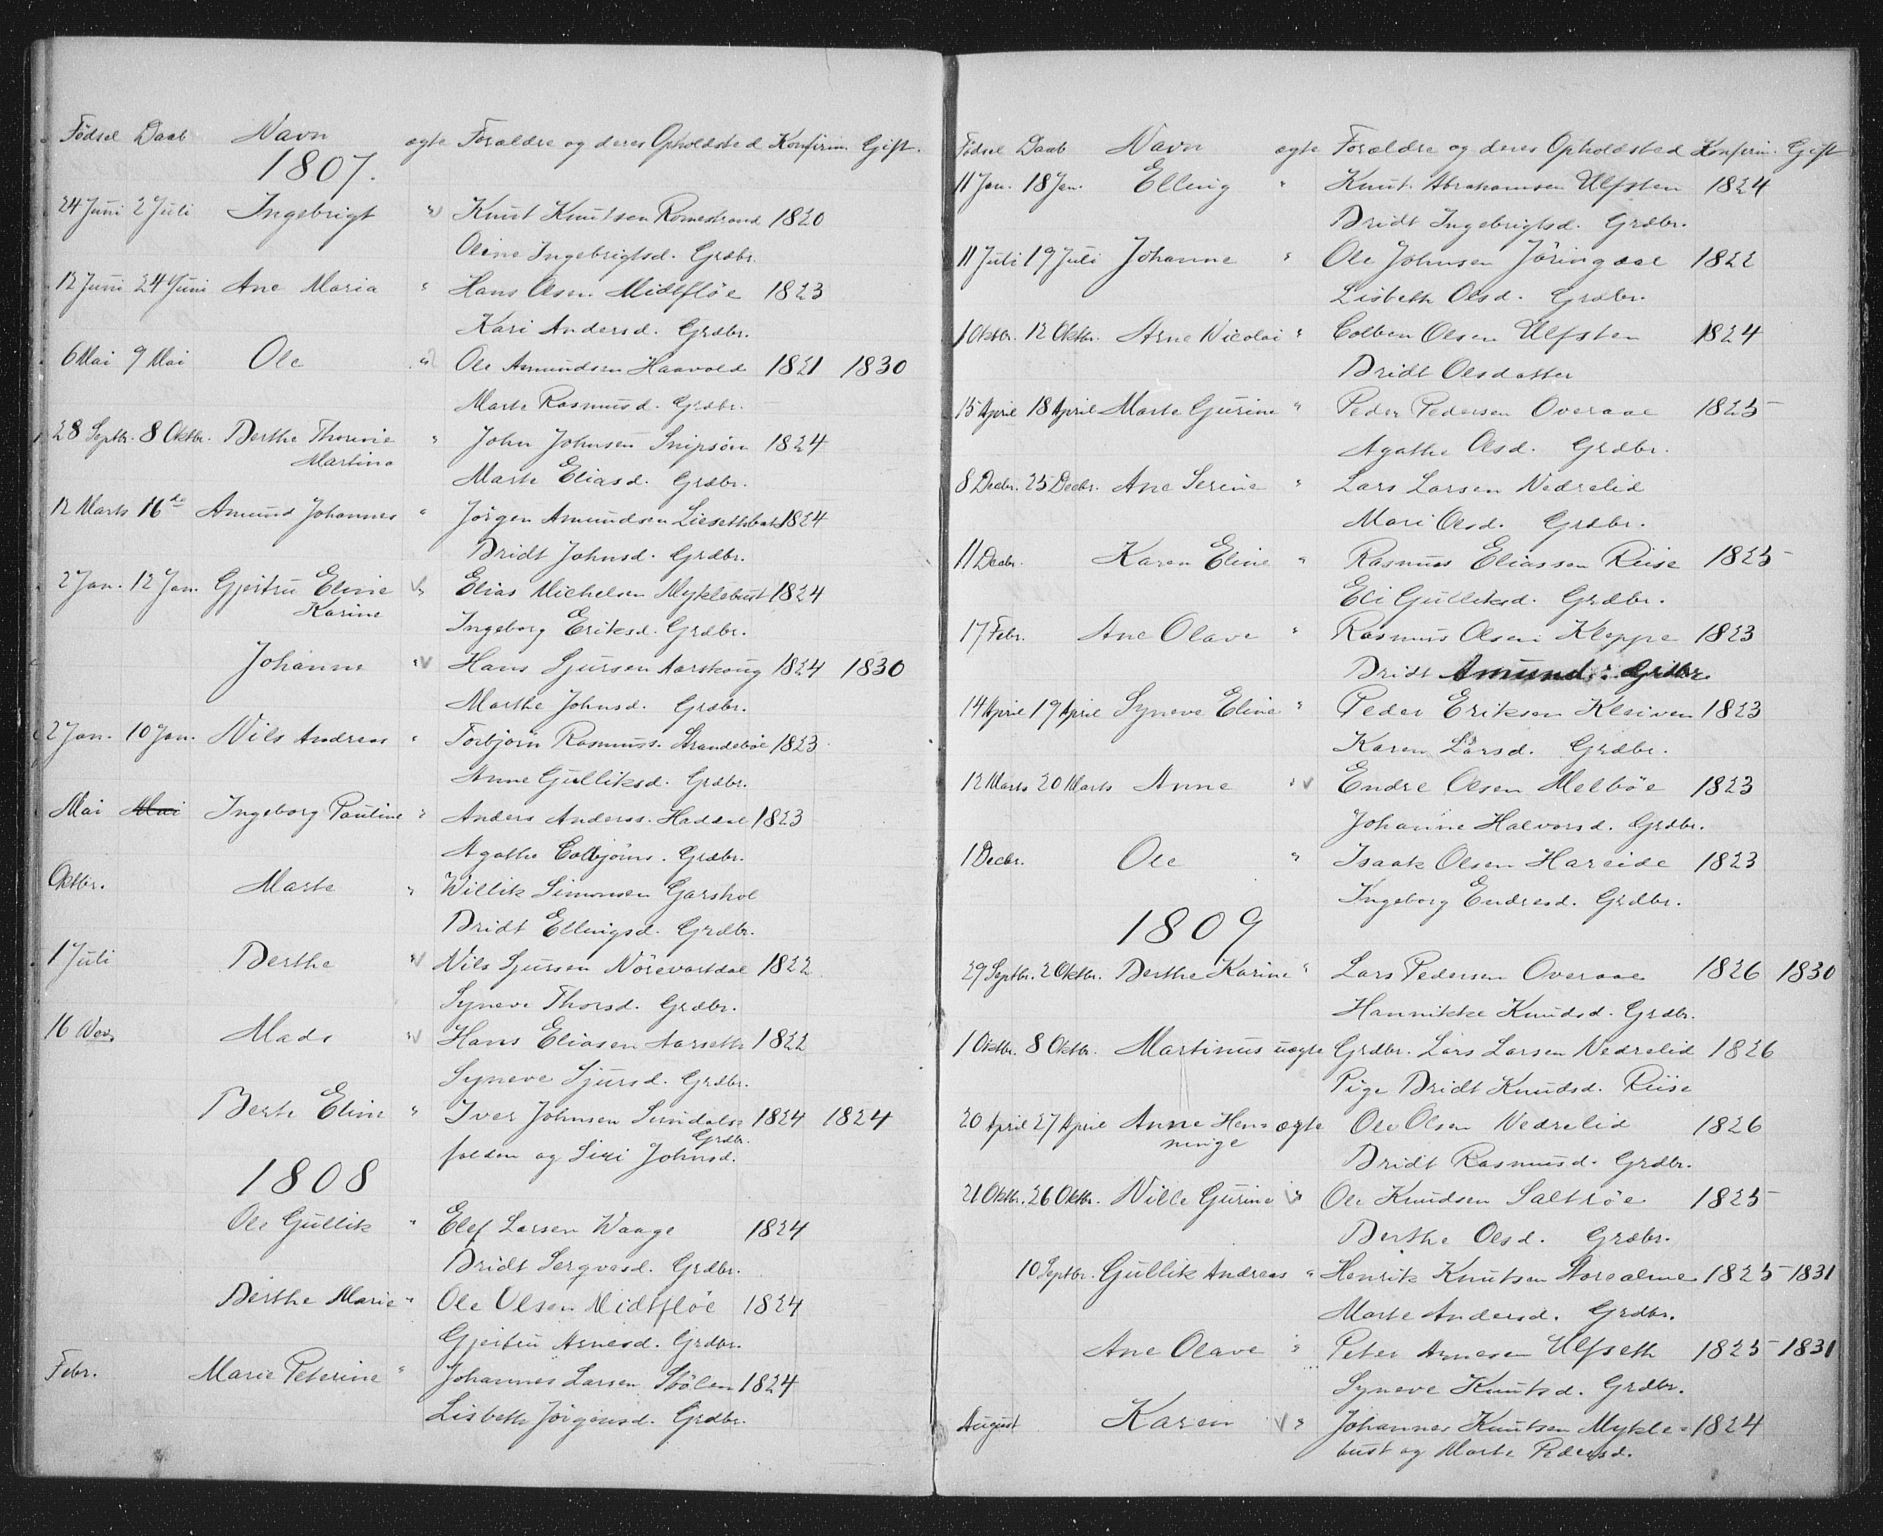 Fødsel Daab Navn ægte Forældre og deres Opholdsted Konfirm. Gift.
1807.
24 Juni 2 Juli Ingebrigt " Knut Knutsen Romestrand 1820
Oline Ingebrigtsd. Grdbr.
12 Juni 24 Juni Ane Maria " Hans Olsen Midtfløe 1823
Kari Andersd. Grdbr.
6 Mai 9 Mai Ole " Ole Amundsen Haavold 1821 1830
Marte Rasmusd. Grdbr.
28 Septbr. 8 Oktbr. Berthe Thorine " John Johnsen Snipsøir 1824
Martina
Marte Eliasd. Grdbr.
12 Marts 16de Amund Johannes " Jørgen Amundsen 1824
Bridt Johnsd. Grdbr.
2 Jan. 12 Jan. Gjertru Eline " Elias Michelsen Myklebust 1824
Karine
Ingeborg Eriksd. Grdbr.
Johanne " Hans Sjursen Aarskoug 1824 1830
Marthe Johnsd. Grdbr.
2 Jan. 10 Jan. Nils Andreas " Torbjørn Rasmuss. Strandebøe 1823
Anne Gulliksd. Grdbr.
Mai Mai Ingeborg Pauline " Anders Anderss. Haddal 1823
Agathe Colbjørns. Grdbr.
Oktbr. Marte " Willik Simonsen Garshol
Bridt Ellingsd. Grdbr.
1 Juli Berthe " Nils Sjursen Nörevartdal 1822
Syneve Thorsd. Grdbr.
16 Nov. Mads " Hans Eliasen Aarseth 1822
Syneve Sjursd. Grdbr.
Berte Eline " Iver Johnsen Sundals= 1824 1824
folden og Siri Johnsd. Grdbr.
1808
Ole Gullik " Elef Larsen Waage 1824
Bridt Sergvasd. Grdbr.
Berthe Marie " Ole Olsen Midtfløe 1824
Gjertru Arnesd. Grdbr.
Febr. Marie Peterine " Johannes Larsen Stölen 1824
Lisbeth Jørgensd. Grdbr.
Fødsel Daab Navn ægte Forældre og deres Opholdsted Konfirm. Gift
11 Jan. 18 Jan. Elling " Knut Abrahamsen Ulfsten 1824
Bridt Ingebrigtsd. Grdbr.
11 Juli 19 Juli Johanne " Ole Johnsen Jöringdal 1822
Lisbeth Olsd. Grdbr.
1 Oktbr. 12 Oktbr. Arne Nicolai " Colben Olsen Ulfsten 1824
Bridt Olsdatter
15 April 18 April Marte Gurine " Peder Pedersen Overaae 1825
Agathe Olsd. Grdbr.
8 Decbr. 25 Decbr. Ane Serine " Lars Larsen Nedrelid
Mari Olsd. Grdbr.
11 Decbr. Karen Eline " Rasmus Eliassen Riise 1825
Eli Gulliksd. Grdbr.
17 Febr. Ane Olave " Rasmus Olsen Kleppe 1823
Bridt Amunds: Grdbr.
14 April 19 April Syneve Eline " Peder Eriksen Kleiven 1823
Karen Larsd. Grdbr.
12 Marts 20 Marts Anne " Endre Olsen Melbøe 1823
Johanne Halvorsd. Grdbr.
1 Decbr. Ole " Isaak Olsen Hareide 1823
Ingeborg Endresd. Grdbr.
1809
29 Septbr. 2 Oktbr. Berthe Karine " Lars Pedersen Overaae 1826 1830
Hannikke Knudsd. Grdbr.
1 Oktbr. 8 Oktbr. Martinus uægte Grdbr. Lars Larsen Nedrelid 1826
Pige Bridt Knudsd. Riise
20 April 27 April Anne Hen= ægte Ole Olsen Nedrelid 1826
ninge
Bridt Rasmusd. Grdbr.
21 Oktbr. 26 Oktbr. Nille Gurine " Ole Knudsen Saltrøe 1825
Berthe Olsd. Grdbr.
10 Septbr. Gullik Andreas " Henrik Knutsen Storealme 1825 1831
Marte Andersd. Grdbr.
Ane Olave " Peter Arnesen Ulfseth 1825 1831
Syneve Knutsd. Grdbr.
August Karen " Johannes Knutsen Mykle= 1824
bust og Marte Pedersd.